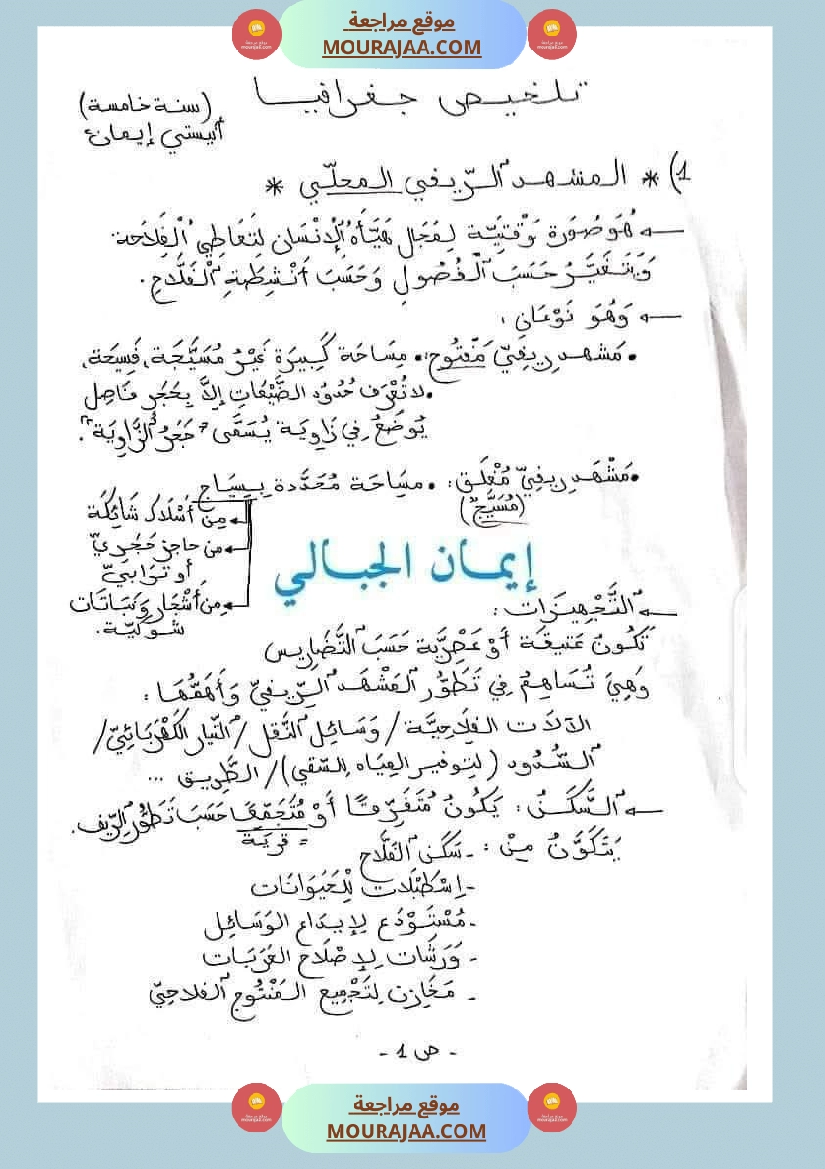 موقع مراجعة
MOURAJAA.COM
تلخيص جغرافيا
(سنة خامسة)
أنيستي إيمان
1) * المشهد الرّيفي المحلّي *
← هُوَ صُورَة وَقْتِيَّة لِمَجَال هَيَّأَهُ الْإِنْسَان لِتَعَاطِي الْفِلَاحة
وَيَتَغَيَّرُ حَسَبَ الْفُصُولِ وَحَسَبَ أَنْشِطَةِ الْفَلَّاحِ.
← وَهُوَ نَوْعَانِ :
• مَشهد رِيفِيّ مَفْتُوح: • مِسَاحَة كَبِيرَة غَيْرُ مُسَيَّجَة، فَسِيحَة،
• لا تُعْرَف حُدُودُ الضَّيْعَاتِ إِلاَّ بِحَجَرٍ فَاصِل
يُوضَعُ فِي زَاوِيَة يُسَمَّى "حَجَرُ الزَّاوِيَة".
• مَشْهَد رِيفِيّ مُغْلَق: • مِسَاحَة مُحَدَّدة بِسِيَاج
(مُسَيَّج)
مِن أَسْلَاك شَائِكَة
مِن حاجز حَجَرِيّ
أو تُرَابِيّ
مِن أَشْجَار وَنَبَاتَات
شَوْكِيّة.
إيمان الجبالي
← التَّجْهِيزَات :
تَكُونُ عَتِيقَة أَوْ عَصْرِيَّة حَسَبَ التَّضَارِيس
وَهِيَ تُسَاهِمُ فِي تَطَوُّر المَشْهَد الرِّيفِيّ وَأَهَمُّهَا :
الآلات الفِلَاحِيَّة / وَسَائِل النَّقل / التّيار الكَهْرَبَائِيّ /
السُّدُود (لتوفير المِيَاه للسّقي) / الطَّرِيق ...
← السَّكَنُ : يَكُونُ مُتَفَرِّقًا أَوْ مُتَجَمِّعًا حَسَبَ تَطَوُّر الرّيف.
= قَريَة
يَتَكَوَّنُ مِنْ : - سَكَن الفَلَّاح
- إِسْطَبْلَات لِلْحَيَوَانَات
- مُسْتَوْدَع لِإِيدَاع الوَسَائِل
- وَرَشَات لِإِصْلَاح العَرَبَات
- مَخَازِن لِتَجْمِيع المَنْتُوج الفلاحِيّ
- ص 1 -
موقع مراجعة
MOURAJAA.COM